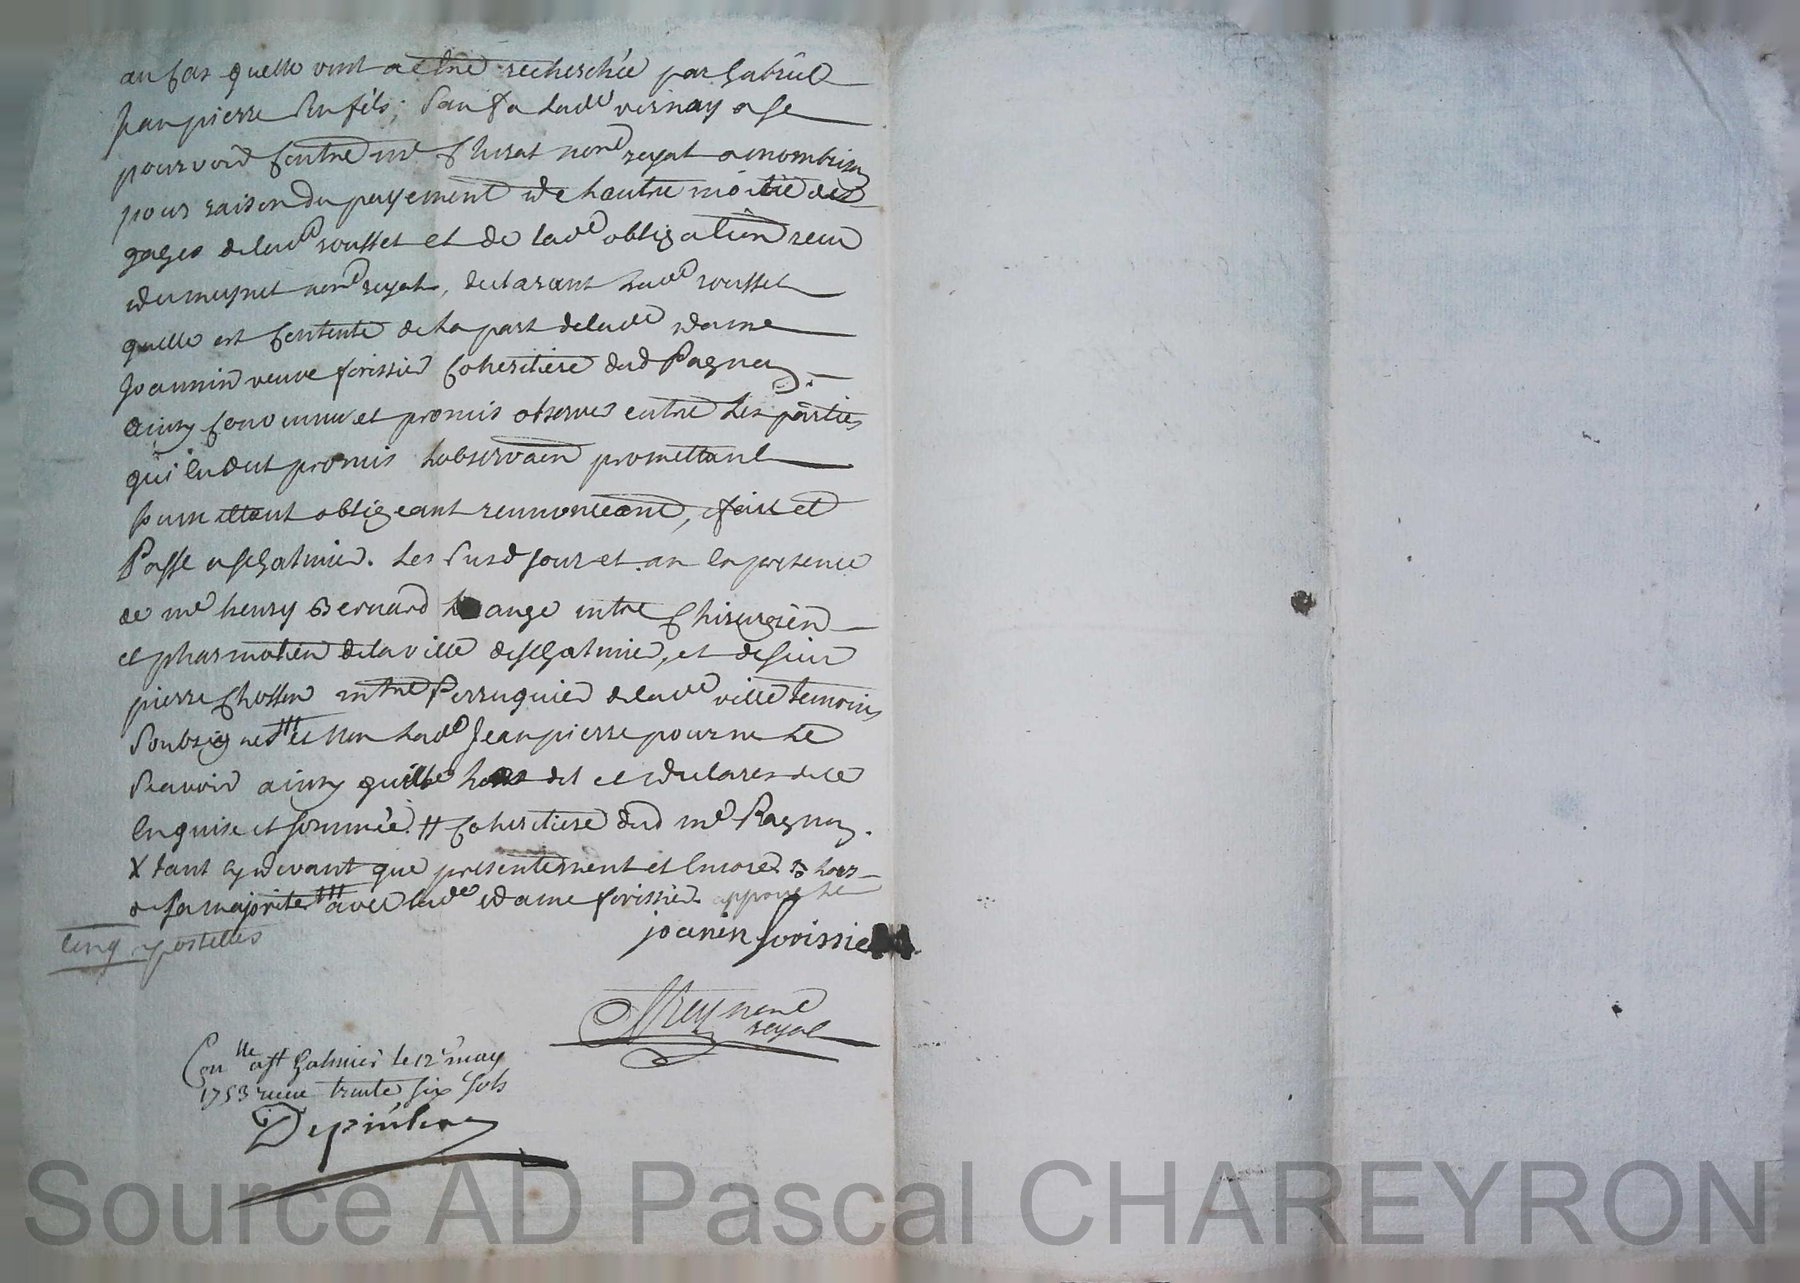 au Cas quelle vint a Etre recherchée par Gabriel
Jeanpierre Son fils; Sauf a lad.e vernay a Se
pourvoir Contre m.e Chirat no.re royal a monbrison
pour raison du payement de Lautre moitié des
gages de lad.e rousset et de lad.e obligation recu
no.re royal, declarant Lad.e rousset
quelle est Contente de La part de lad.e dame
Joannin veuve forissier Coheritiere dud Pagnon
ainsy Convenu et promis observer entre Les parties
qui len ont promis Lobservaon promettant
Soumettant obligeant renonceant, fait et
Passé a st Galmier. Les Susd jour et an En presence
de m.e henry Bernard Lange m.tre Chirurgien
et pharmatien de la ville de st Galmier, et de Sieur
pierre Chossen m.tre Perruquier de lad.e ville temoins
Soubsignes ttt et Non Lad.e Jeanpierre pour ne Le
Scavoir ainsy quelle La dit et declaré de ce
Enquise et Sommée. # Coheritiere dud m.e Pagnon.
X tant cy devant que presentement et Encore hors
de Sa majorité ttt avec lad.e dame forissier. approuvé Le
Cinq postilles
joanin forissier
Rey no.re
royal
Con.lle a st Galmier le 12.e may
1753 recu trente Six Sols
Depinhac
Source AD Pascal CHAREYRON